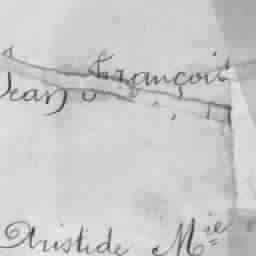 François
Jean
Aristide Mie